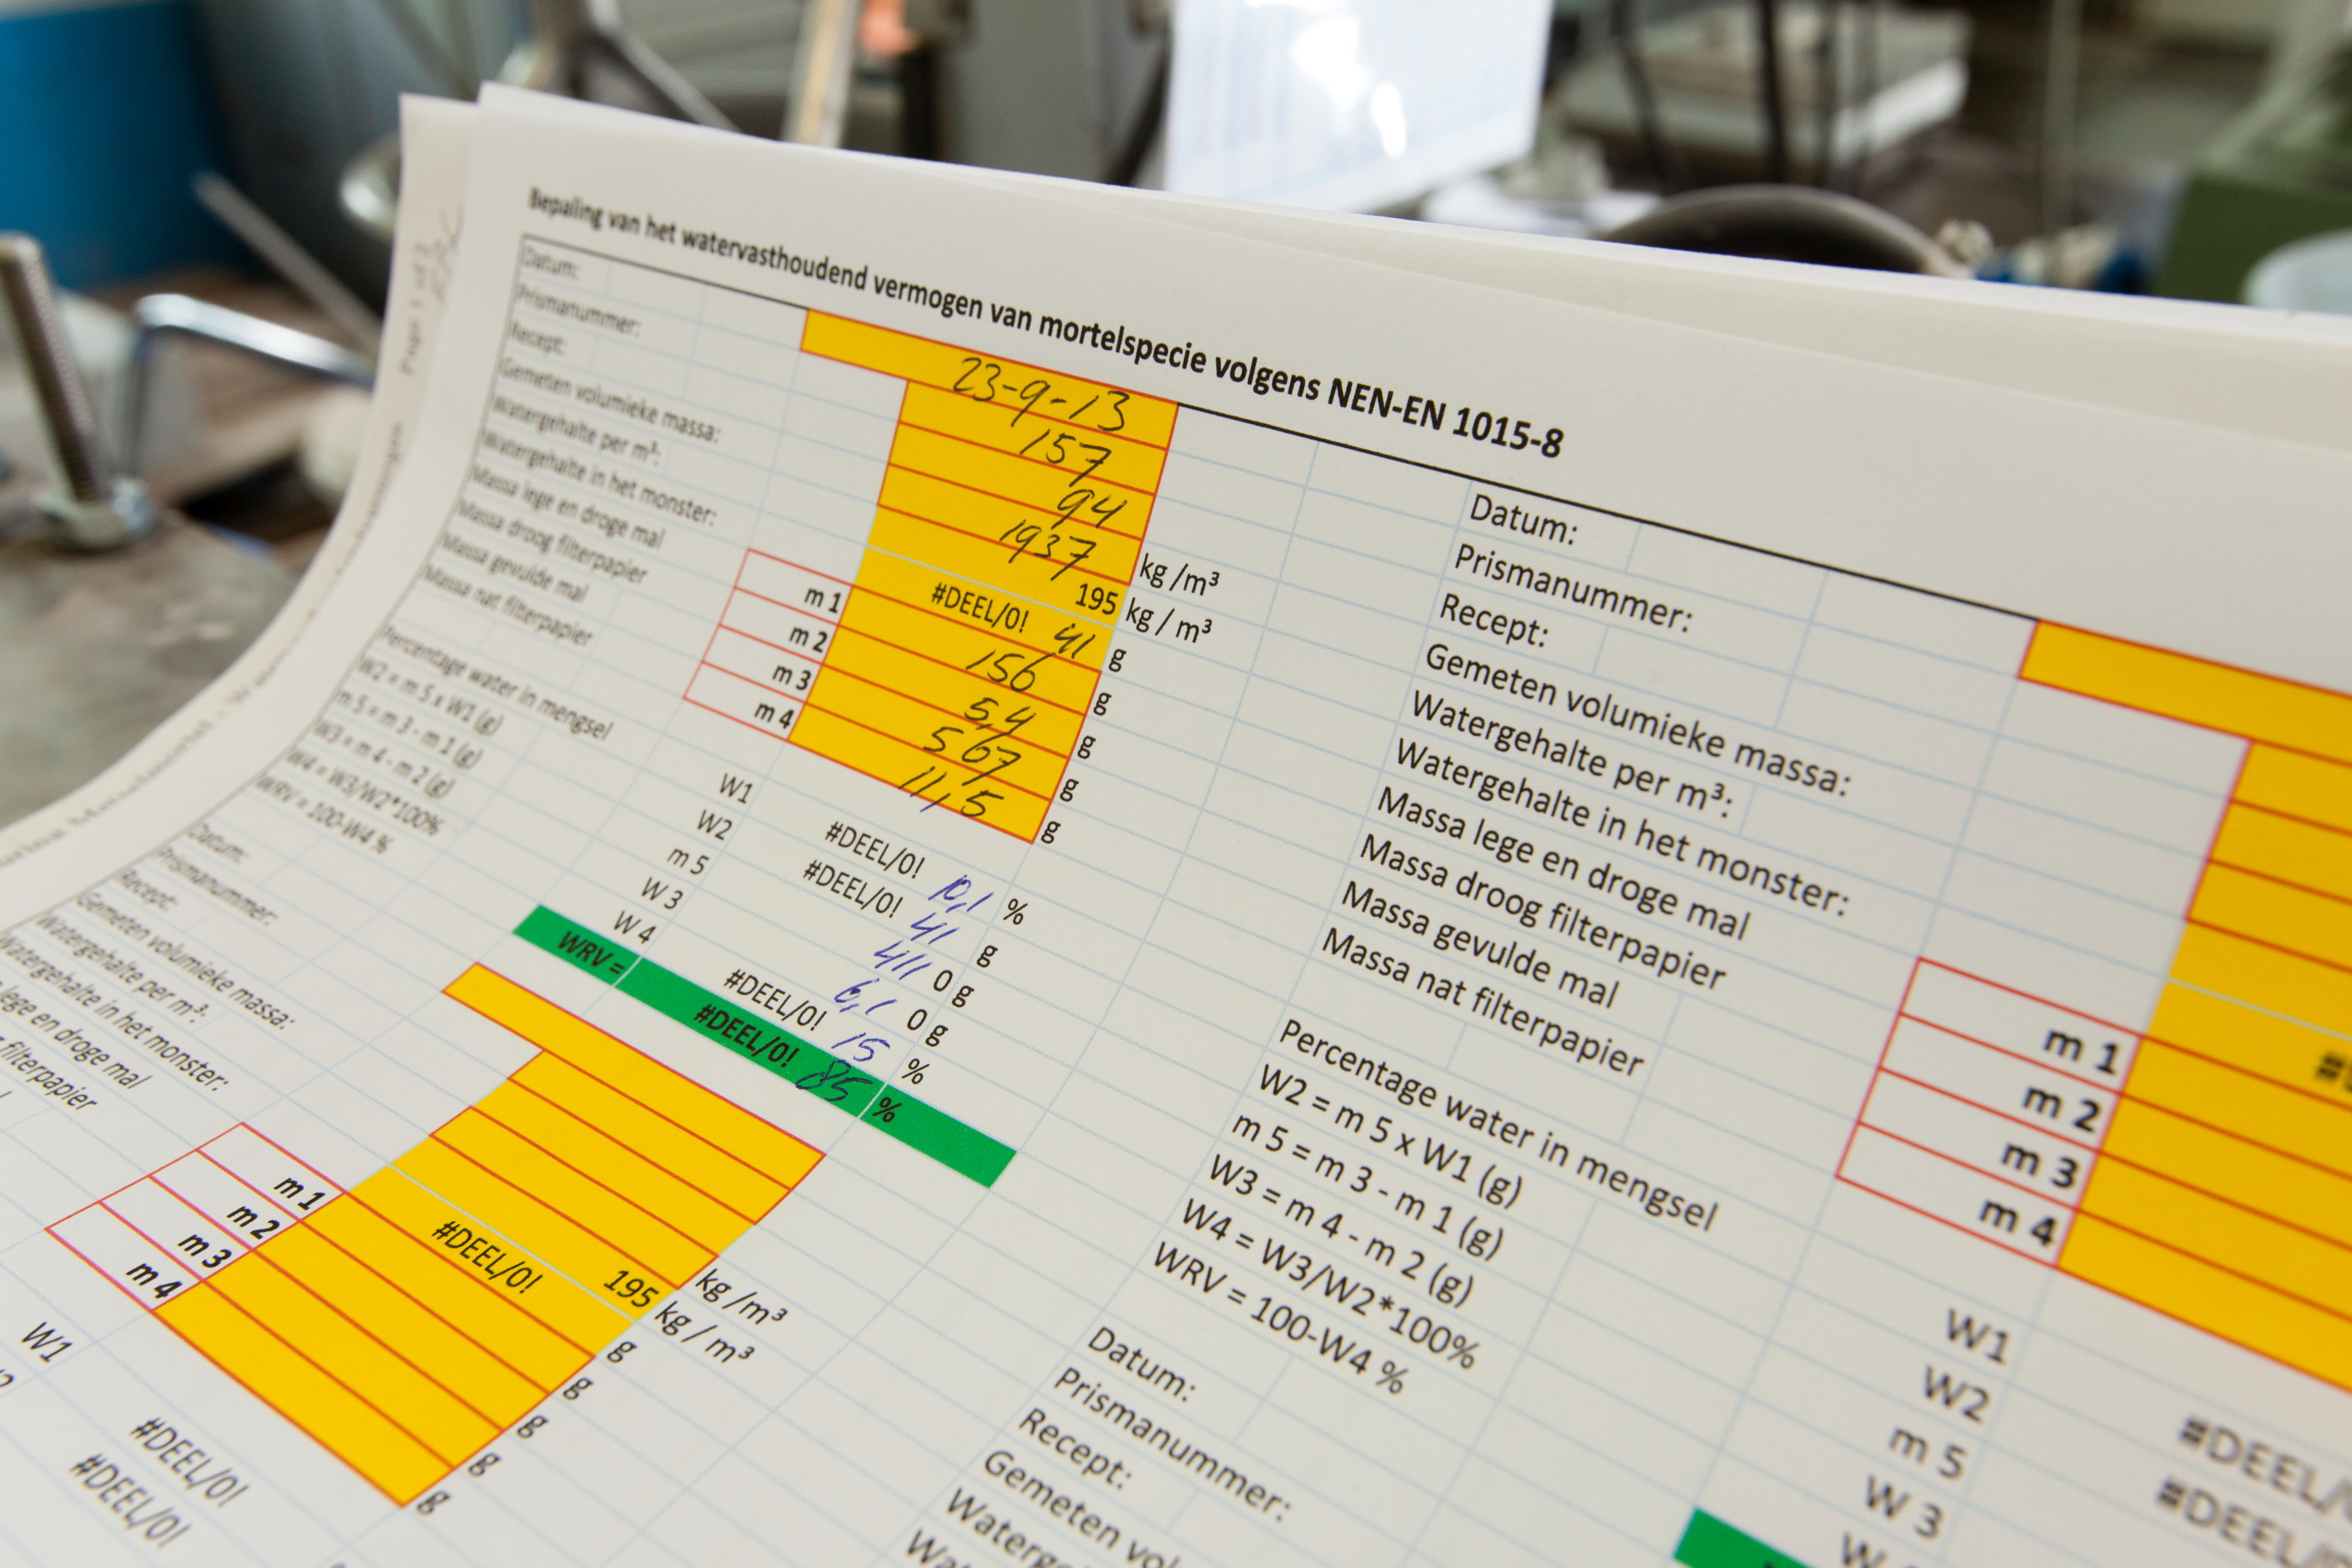 Bepaling van het watervasthoudend vermogen van mortelspecie volgens NEN-EN 1015-8
Datum: 23-9-13
Prismanummer: 157
Recept: 94
Gemeten volumieke massa: 1937 kg /m³
Watergehalte per m³: 195 kg / m³
Watergehalte in het monster: #DEEL/0! 41 g
Massa lege en droge mal m 1 156 g
Massa droog filterpapier m 2 5,4 g
Massa gevulde mal m 3 567 g
Massa nat filterpapier m 4 11,5 g
Percentage water in mengsel W1 #DEEL/0! 10,1 %
W2 = m 5 x W1 (g) W2 #DEEL/0! 41 g
m 5 = m 3 - m 1 (g) m 5 411 0 g
W3 = m 4 - m 2 (g) W 3 6,1 0 g
W4 = W3/W2*100% W 4 #DEEL/0! 15 %
WRV = 100-W4 % WRV = #DEEL/0! 85 %
Datum:
Prismanummer:
Recept:
Gemeten volumieke massa: kg /m³
Watergehalte per m³: 195 kg / m³
Watergehalte in het monster: #DEEL/0! g
lege en droge mal m 1 g
filterpapier m 2 g
m 3 g
m 4 g
W1 #DEEL/0!
#DEEL/0!
Datum:
Prismanummer:
Recept:
Gemeten volumieke massa:
Watergehalte per m³:
Watergehalte in het monster:
Massa lege en droge mal m 1
Massa droog filterpapier m 2
Massa gevulde mal m 3
Massa nat filterpapier m 4
Percentage water in mengsel W1 #DEEL/
W2 = m 5 x W1 (g) W2 #DEEL/0
m 5 = m 3 - m 1 (g) m 5
W3 = m 4 - m 2 (g) W 3
W4 = W3/W2*100%
WRV = 100-W4 %
Datum:
Prismanummer:
Recept:
Gemeten vol
Waterge